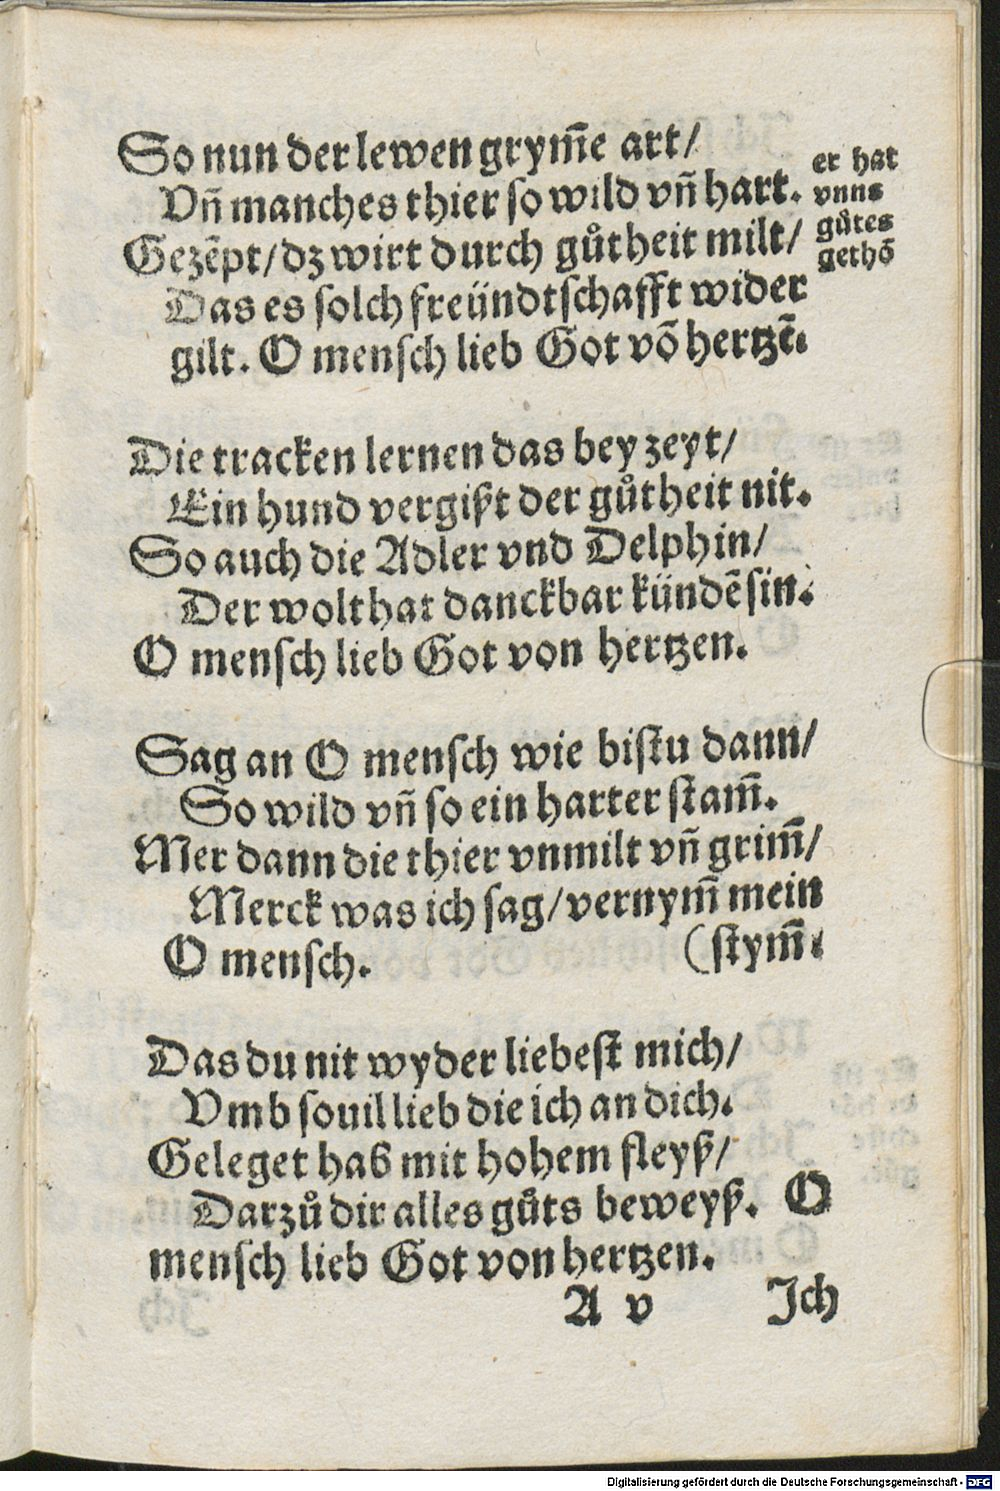 So nun der lewen grym̄e art/
Vn̄ manches thier so wild vn̄ hart.
Gezēpt/dz wirt durch gůtheit milt/
Das es solch freündtschafft wider
gilt. O mensch lieb Got vō hertzē.
er hat
vnns
gůtes
gethō
Die tracken lernen das bey zeyt/
Ein hund vergißt der gůtheit nit.
So auch die Adler vnd Delphin/
Der wolthat danckbar kündē sin.
O mensch lieb Got von hertzen.
Sag an O mensch wie bistu dann/
So wild vn̄ so ein harter stam̄.
Mer dann die thier vnmilt vn̄ grim̄/
Merck was ich sag/vernym̄ mein
O mensch. (stym̄.
Das du nit wyder liebest mich/
Vmb souil lieb die ich an dich.
Geleget hab mit hohem fleyß/
Darzů dir alles gůts beweyß. O
mensch lieb Got von hertzen.
A v Ich
Digitalisierung gefördert durch die Deutsche Forschungsgemeinschaft - DFG